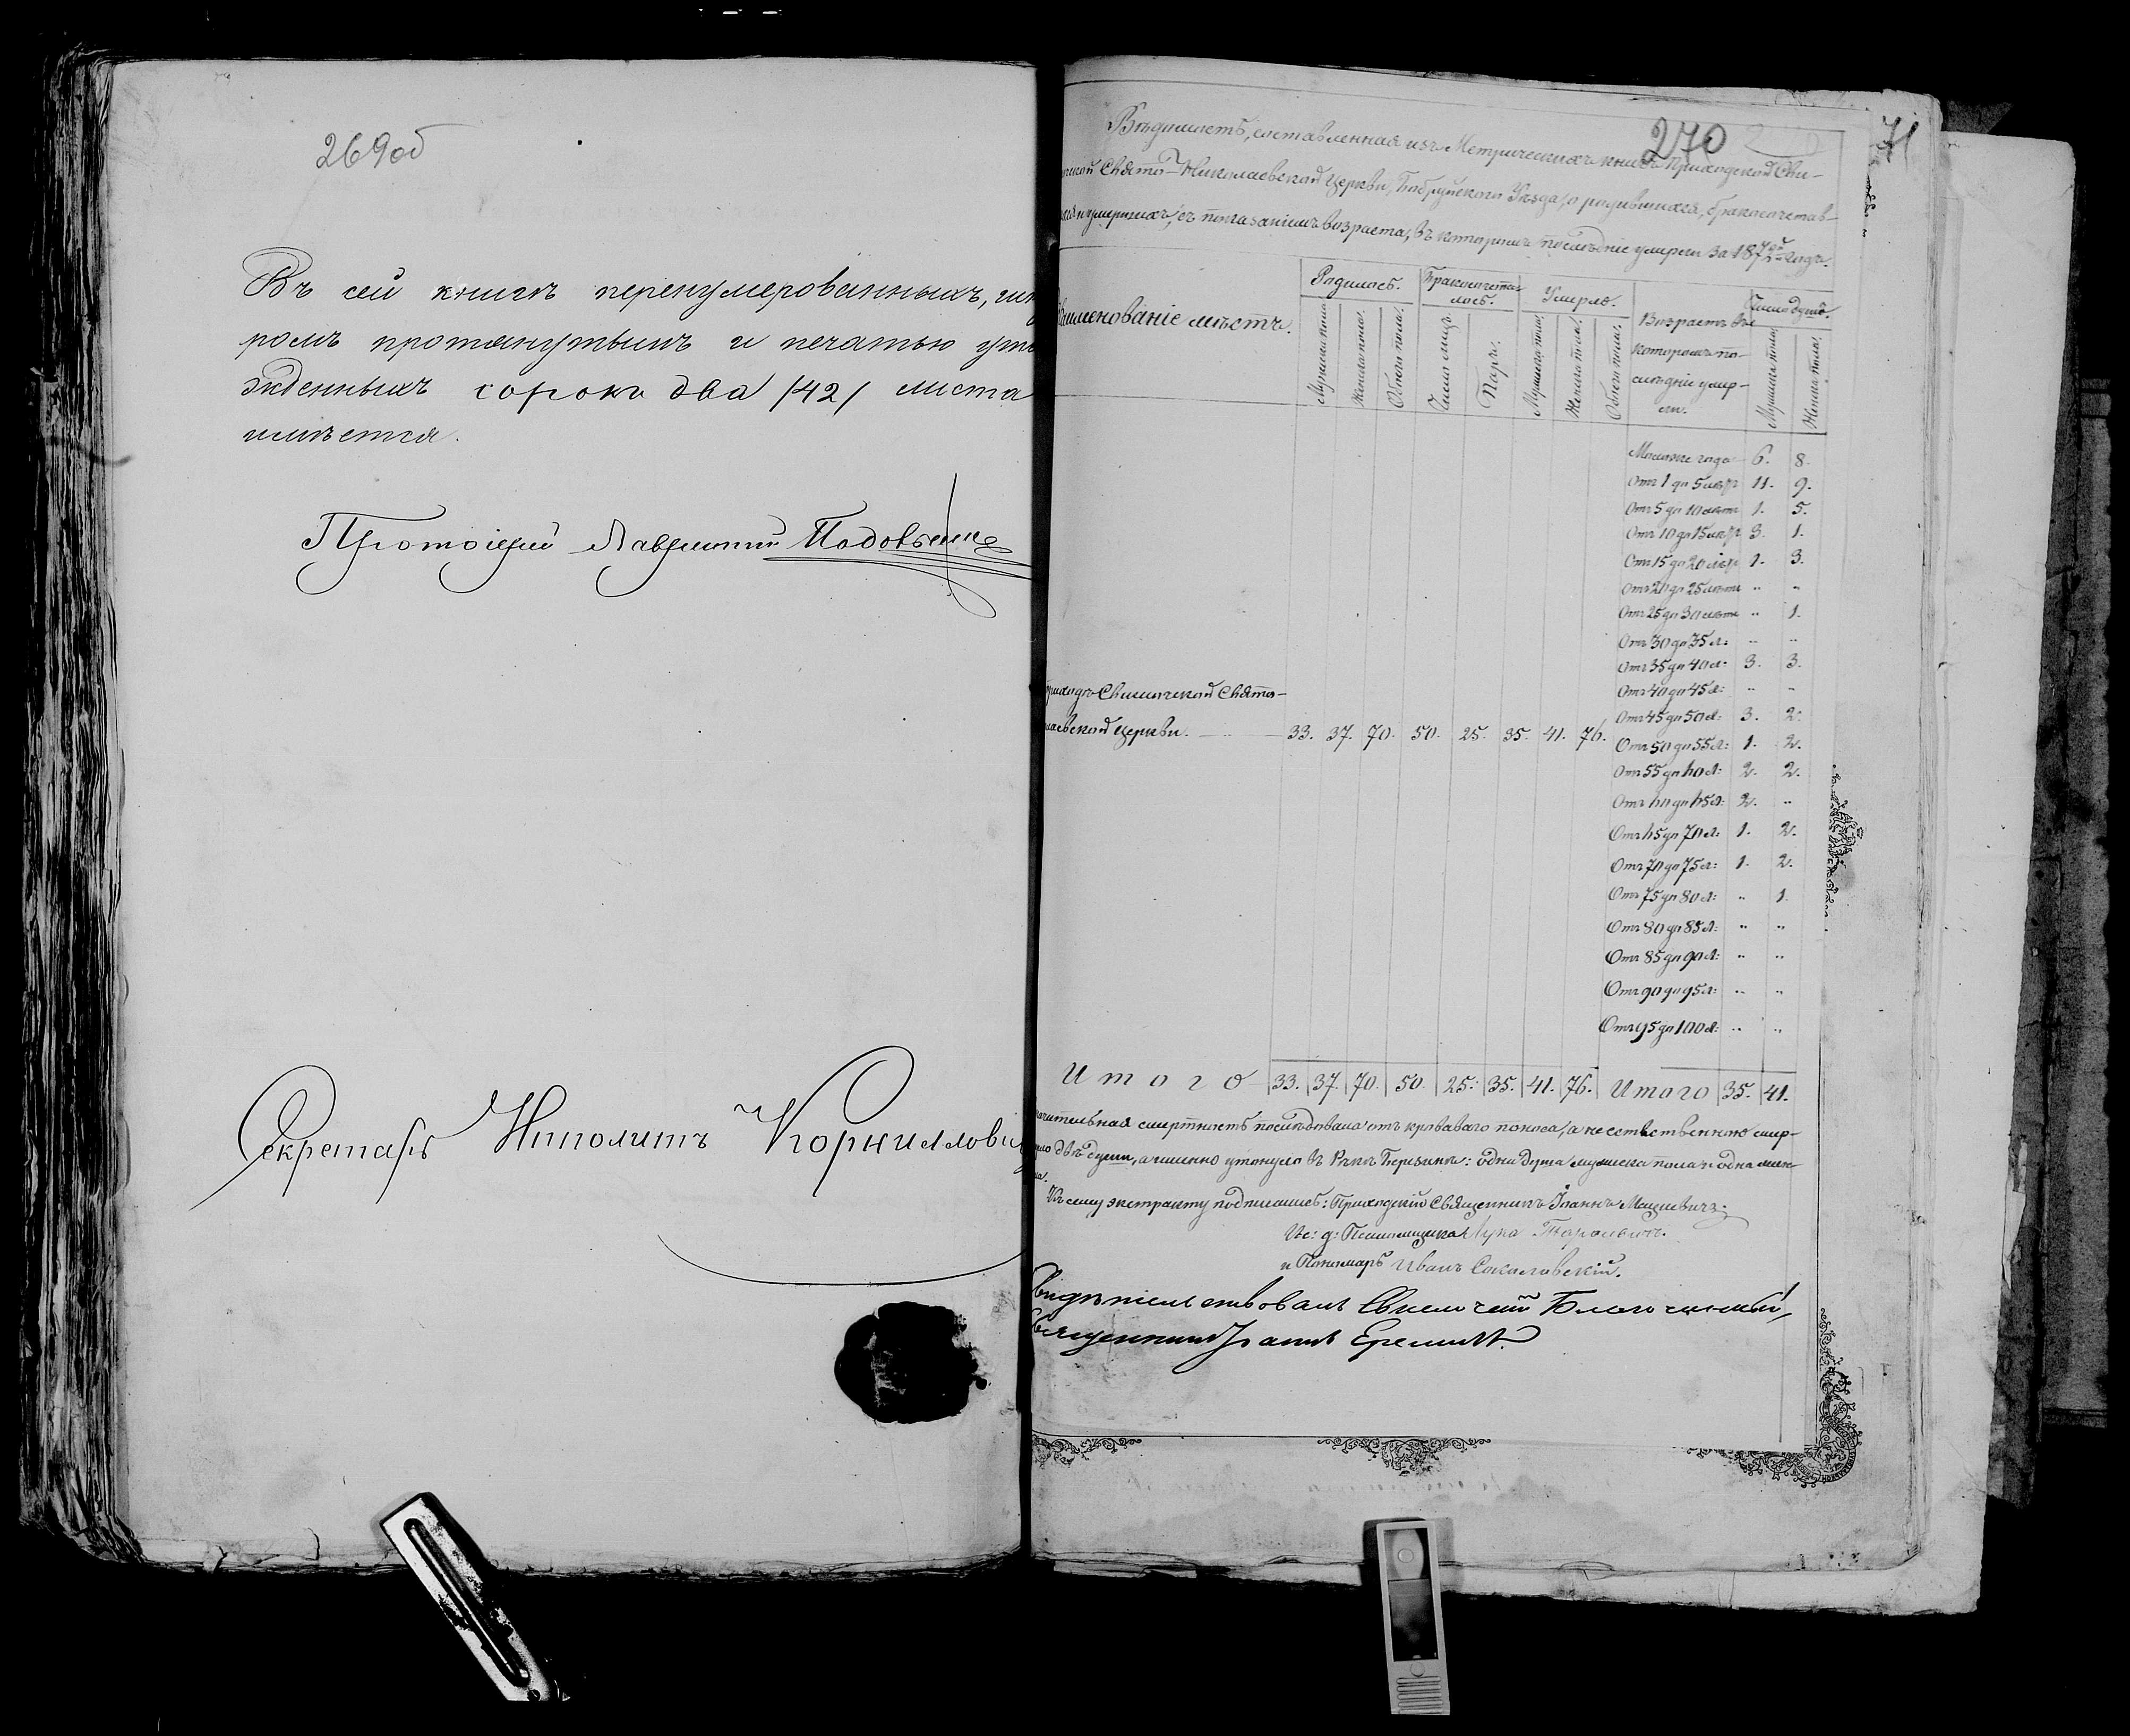 269об
Въ сей книгѣ перенумерованныхъ, шну
ромъ протянутыхъ и печатью утвер
жденныхъ сорокъ два /42/ листа
имѣется.
Протоіерей Лаврентій
Секретарь Ипполитъ Корниллови
270
71
Вѣдомость, составленная изъ Метрическихъ книгъ Приходской Сви-
Свято-Николаевской Церкви, Бобруйскаго Уѣзда, о родившихся, бракосочетав-
умершихъ, съ показаніемъ возраста, въ которомъ послѣдніе умерли за 1872й годъ.
Наименованіе мѣстъ.
Родилось.
Бракосочета-
лось.
Умерло.
Возрастъ въ
которомъ по-
слѣдніе умер-
ли.
Число душъ.
Мужеска пола.
Женска пола.
Обоего пола.
Число лицъ
Паръ.
Мужеска пола.
Женска пола.
Обоего пола.
Мужеска пола.
Женска пола.
Моложе года 6. 8.
Отъ 1 до 5 лѣтъ 11. 9.
Отъ 5 до 10 лѣтъ 1. 5.
Отъ 10 до 15 лѣтъ 3. 1.
Отъ 15 до 20 лѣтъ 1. 3.
Отъ 20 до 25 лѣтъ „ „
Отъ 25 до 30 лѣтъ „ 1.
Отъ 30 до 35 л: „ „
Отъ 35 до 40 л: 3. 3.
Отъ 40 до 45 л: „ „
Отъ 45 до 50 л: 3. 2.
Отъ 50 до 55 л: 1. 2.
Отъ 55 до 60 л: 2. 2.
Отъ 60 до 65 л: 2. „
Отъ 65 до 70 л: 1. 2.
Отъ 70 до 75 л: 1. 2.
Отъ 75 до 80 л: „ 1.
Отъ 80 до 85 л: „ „
Отъ 85 до 90 л: „ „
Отъ 90 до 95 л: „ „
Отъ 95 до 100 л: „ „
приходъ Свислочской Свято-
лаевской Церкви. 33. 37. 70. 50. 25. 35. 41. 76.
Итого 33. 37. 70. 50. 25. 35. 41. 76. Итого 35. 41.
чительная смертность послѣдовала отъ кроваваго поноса, а неестественною смер-
двѣ души, а именно утонуло въ Рѣкѣ Березинѣ: одна душа мужеска пола и одна жен-
Къ сему экстракту подписались: Приходскій Священникъ Іоаннъ Мацкевичъ
Ис: д: Псаломщика Лука
и Пономарь Иванъ Соколовскій.
Свидѣтельствовалъ Свислочскій Благочинный,
Священникъ Іоаннъ